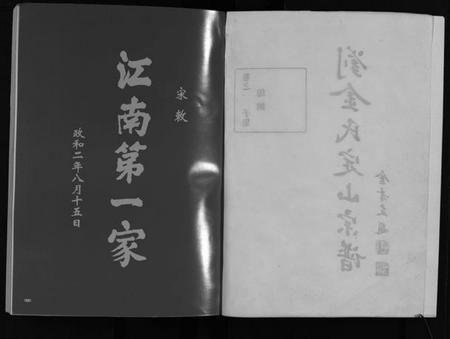 宋敕
江南第一家
政和二年八月十五日
劉金氏定山宗谱